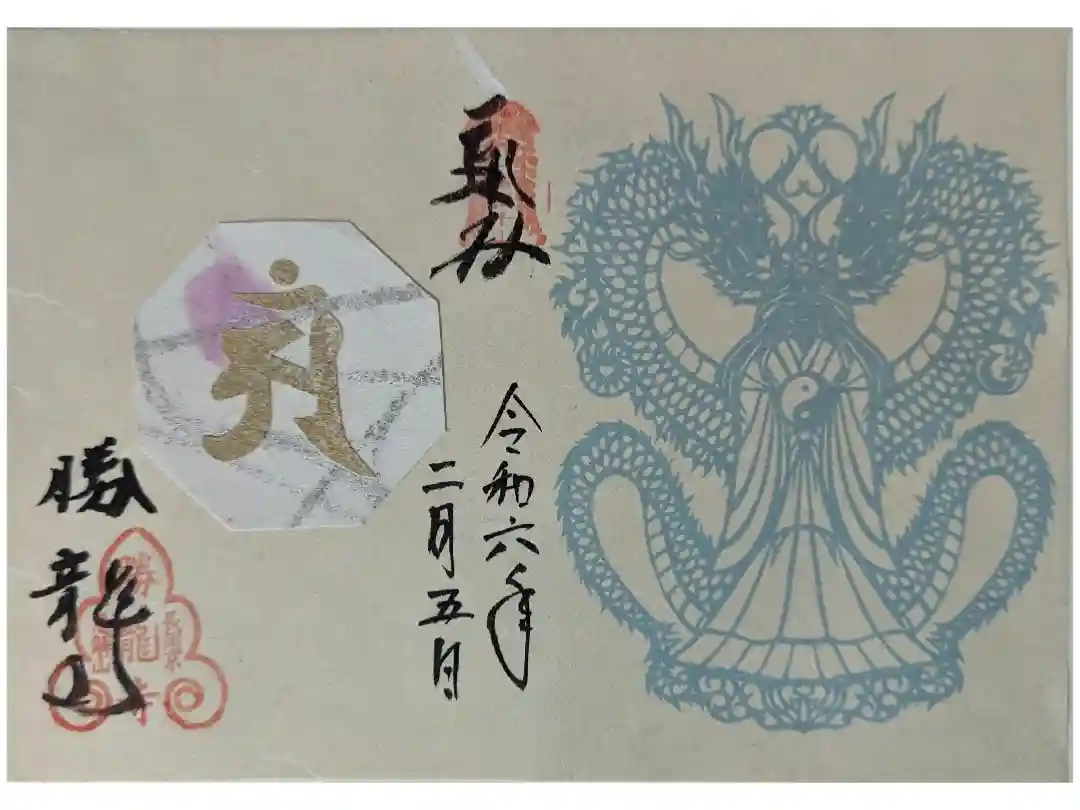 令和六年
二月五日
勝龍寺
勝龍寺
長岡京